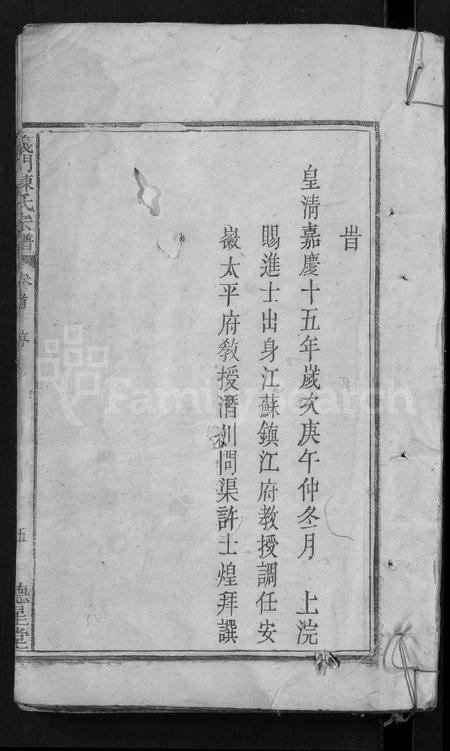 昔
皇清嘉慶十五年歲次庚午仲冬月 上浣
賜進士出身江蘇鎮江府教授調任安
徽太平府教授潛川問渠許士煌拜譔
義門陳氏宗譜 卷首 序 五 德星堂
FamilySearch